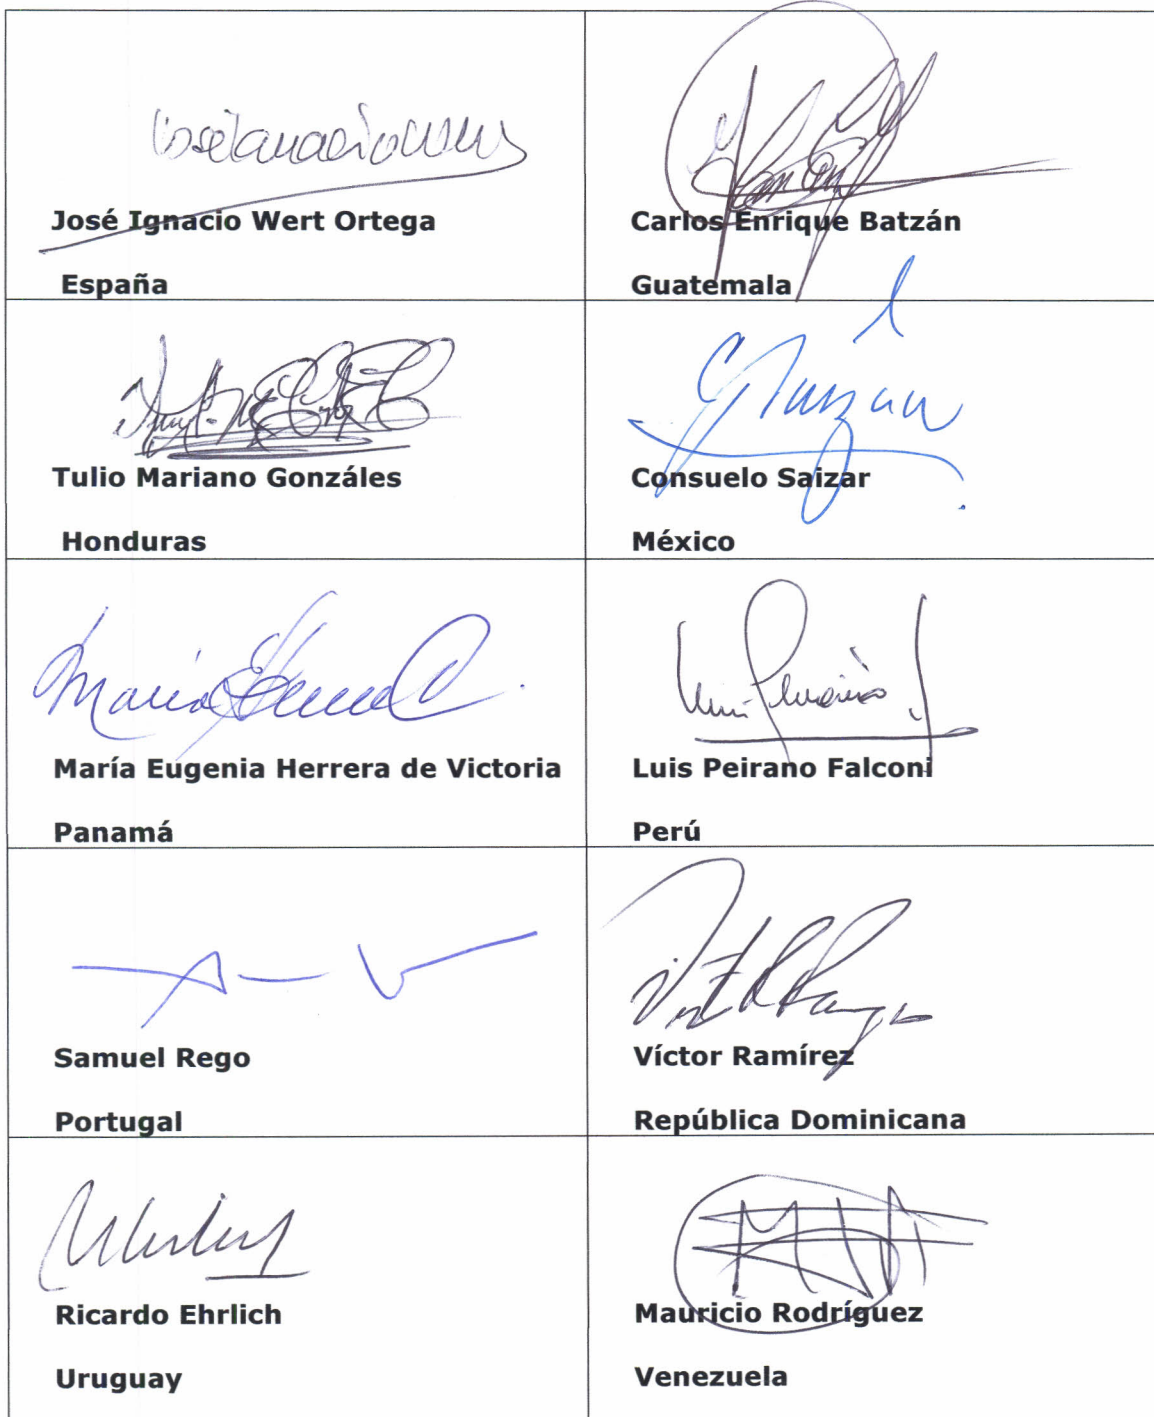 José Ignacio Wert Ortega
España
Carlos Enrique Batzán
Guatemala
Tulio Mariano Gonzáles
Honduras
Consuelo Saizar
México
María Eugenia Herrera de Victoria
Panamá
Luis Peirano Falconi
Perú
Samuel Rego
Portugal
Víctor Ramírez
República Dominicana
Ricardo Ehrlich
Uruguay
Mauricio Rodríguez
Venezuela